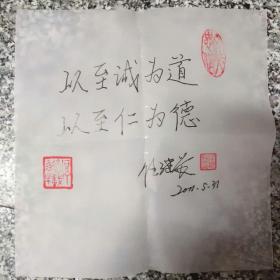 以至诚为道
以至仁为德
任继愈
2001.5.31